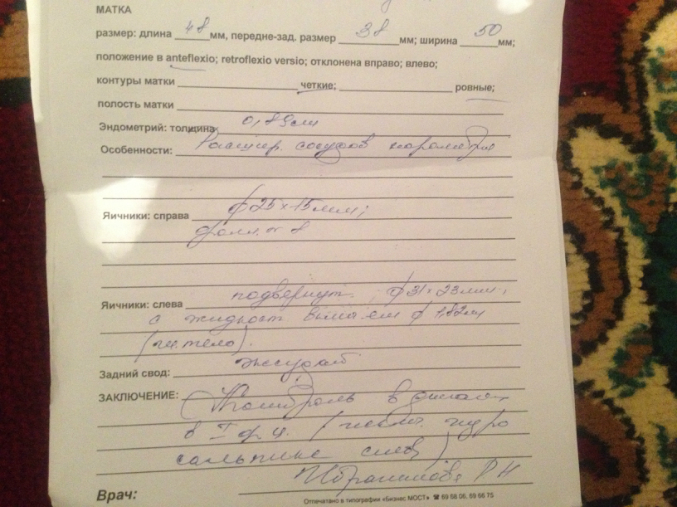 МАТКА
размер: длина 48 мм, передне-зад. размер 38 мм; ширина 50 мм;
положение в anteflexio; retroflexio versio; отклонена вправо; влево;
контуры матки четкие; ровные;
полость матки
Эндометрий: толщина 0,89см
Особенности: Расшир сосудов параметрия
Яичники: справа ф 25×15мм;
фолл. 8
Яичники: слева подвернут. ф 31×23мм.
с жидкост ф 1,82см
тело).
Задний свод: экссудат
ЗАКЛЮЧЕНИЕ: Контроль в
в I ф.ц. гидро
сальпинкс слева)
Врач:
Отпечатано в типографии «Бизнес МОСТ» ☎ 69 58 06, 69 66 75